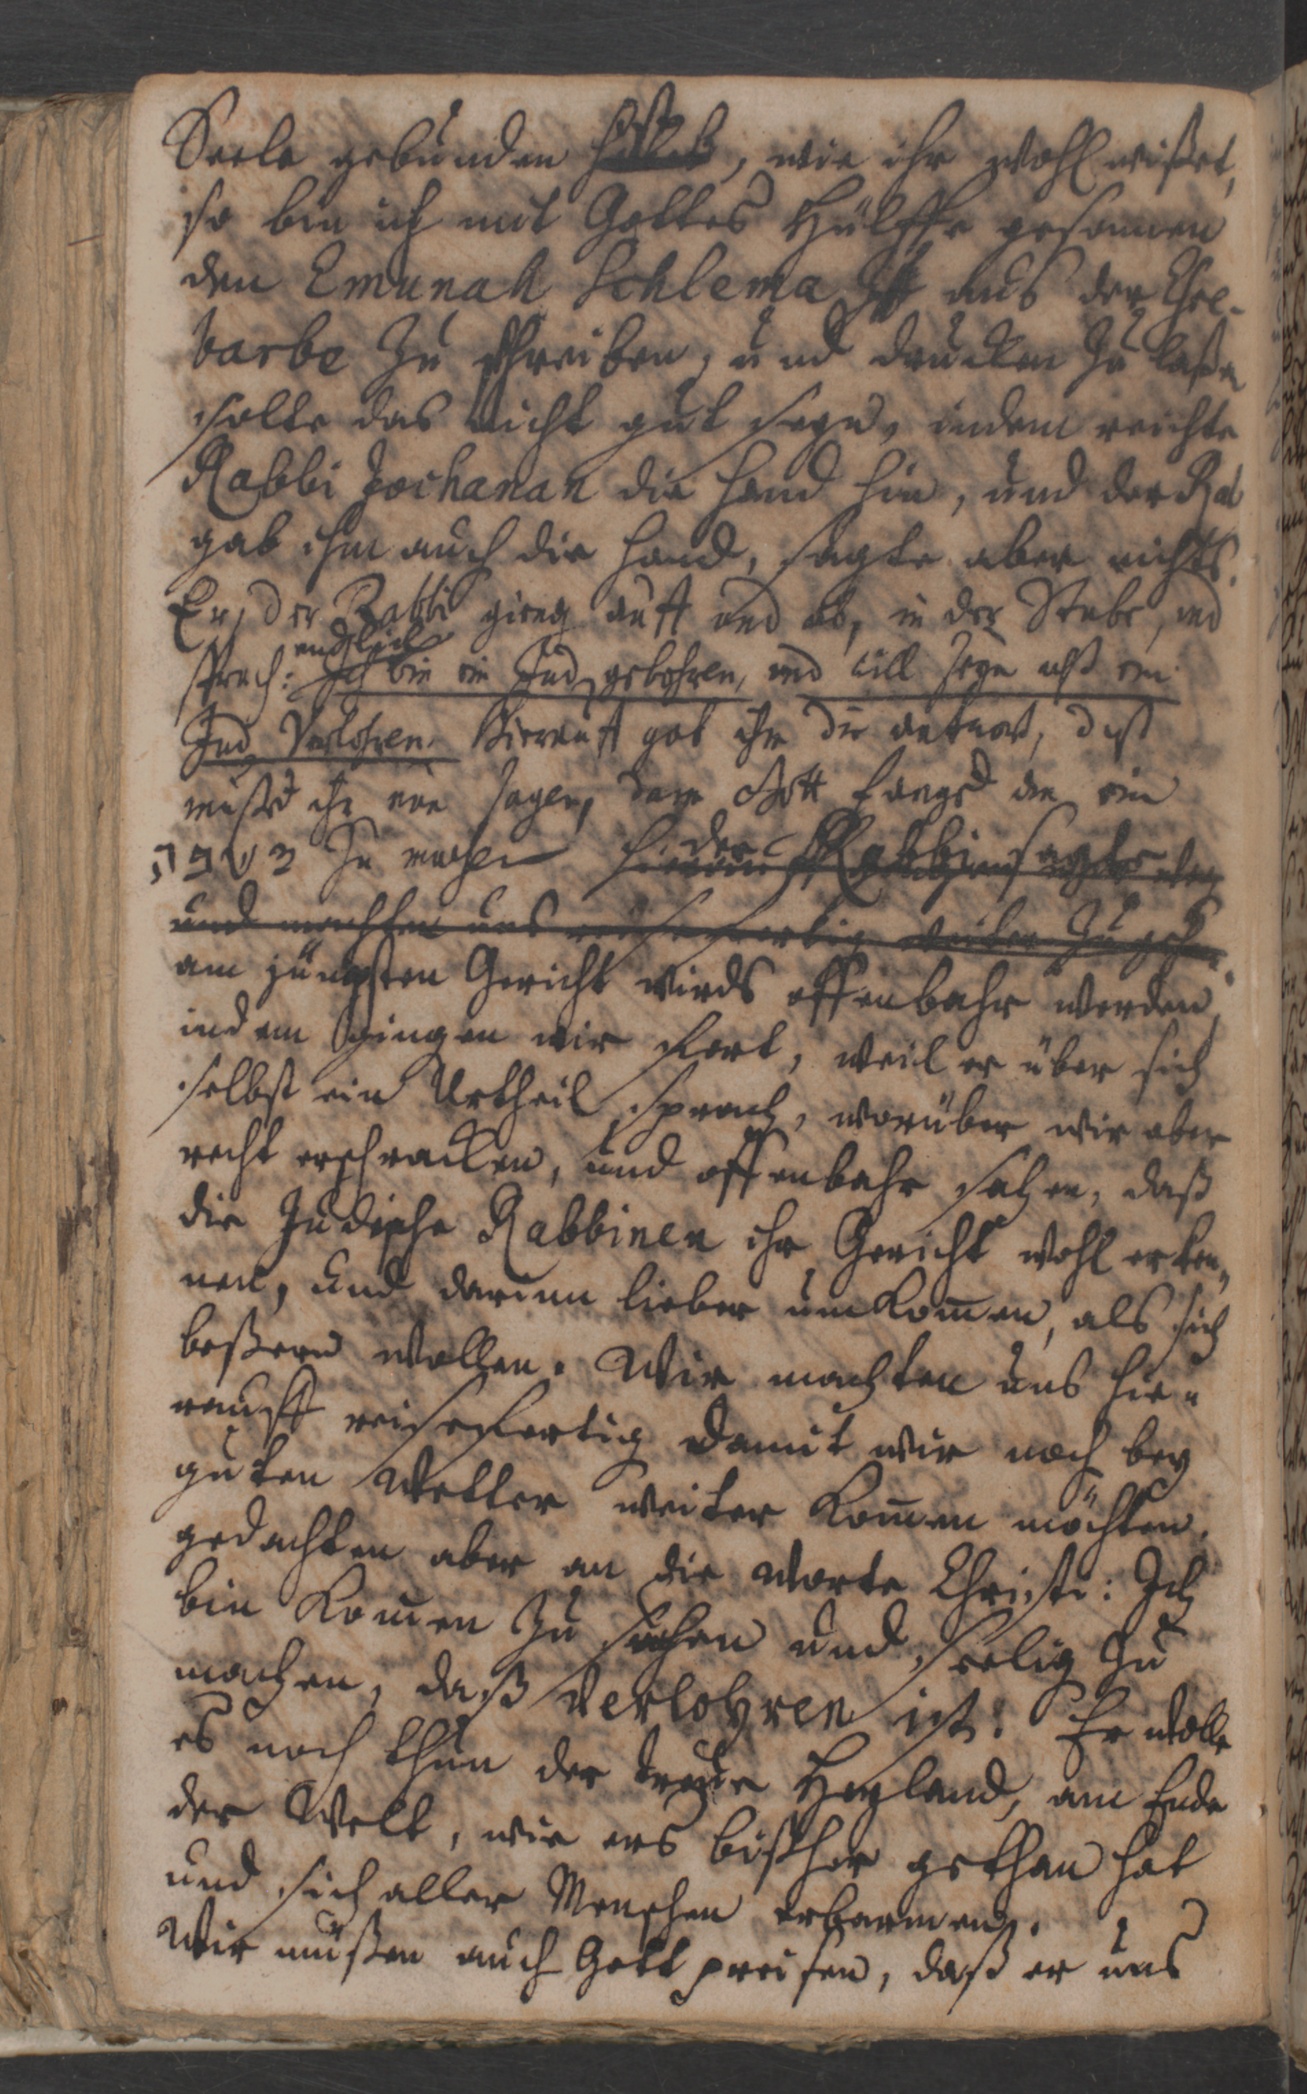 Seele gebunden hat, wie ihr wohl wißet,
so bin ich mit Gottes Hülffe gesonnen
den Emunah Schlema aus der Ehre-
barbe zu schreiben, und drucken zu laßen
solte das nicht gut seyn, indem reichte
Rabbi Jochanan die Hand hin, und der Rab
gab ihm auch die Hand, sagte aber nichts.
Er, der Rabbi gieng auff und ab, in der Stube, und
endlich
sprach: Ich bin ein Jud gebohren, und will seyn alß ein
Jud Verlohren. Hierauff gab ihr die antwort, daß
müßt ihr nie sagen, dann Gott fangd an ein
zu machen der Rabbi sagte
und machten uns reisefertig weiter zu geh
am jüngsten Gericht wirds offenbahr werden,
indem gingen wir fort, weil er über sich
selbst ein Urtheil sprach, worüber wir aber
recht erschracken, und offenbahr sahen, daß
die Judische Rabbinen ihr Gericht wohl erken,,
nen, und darinn lieber umkomen, als sich
beßern wollen. Wir machten uns hie-
rauff reisefertig damit wir noch bey
guten Wetter weiter komen möchten.
gedachten aber an die Worte Christi: Ich
bin komen zu suchen und seelig zu
machen, daß verlohren ist. Er wolle
es noch thun der treue Heyland, am Ende
der Welt, wie ers bißher gethan hat
und sich aller Menschen erbarmen.
Wir müßen auch Gott preisen, daß er uns